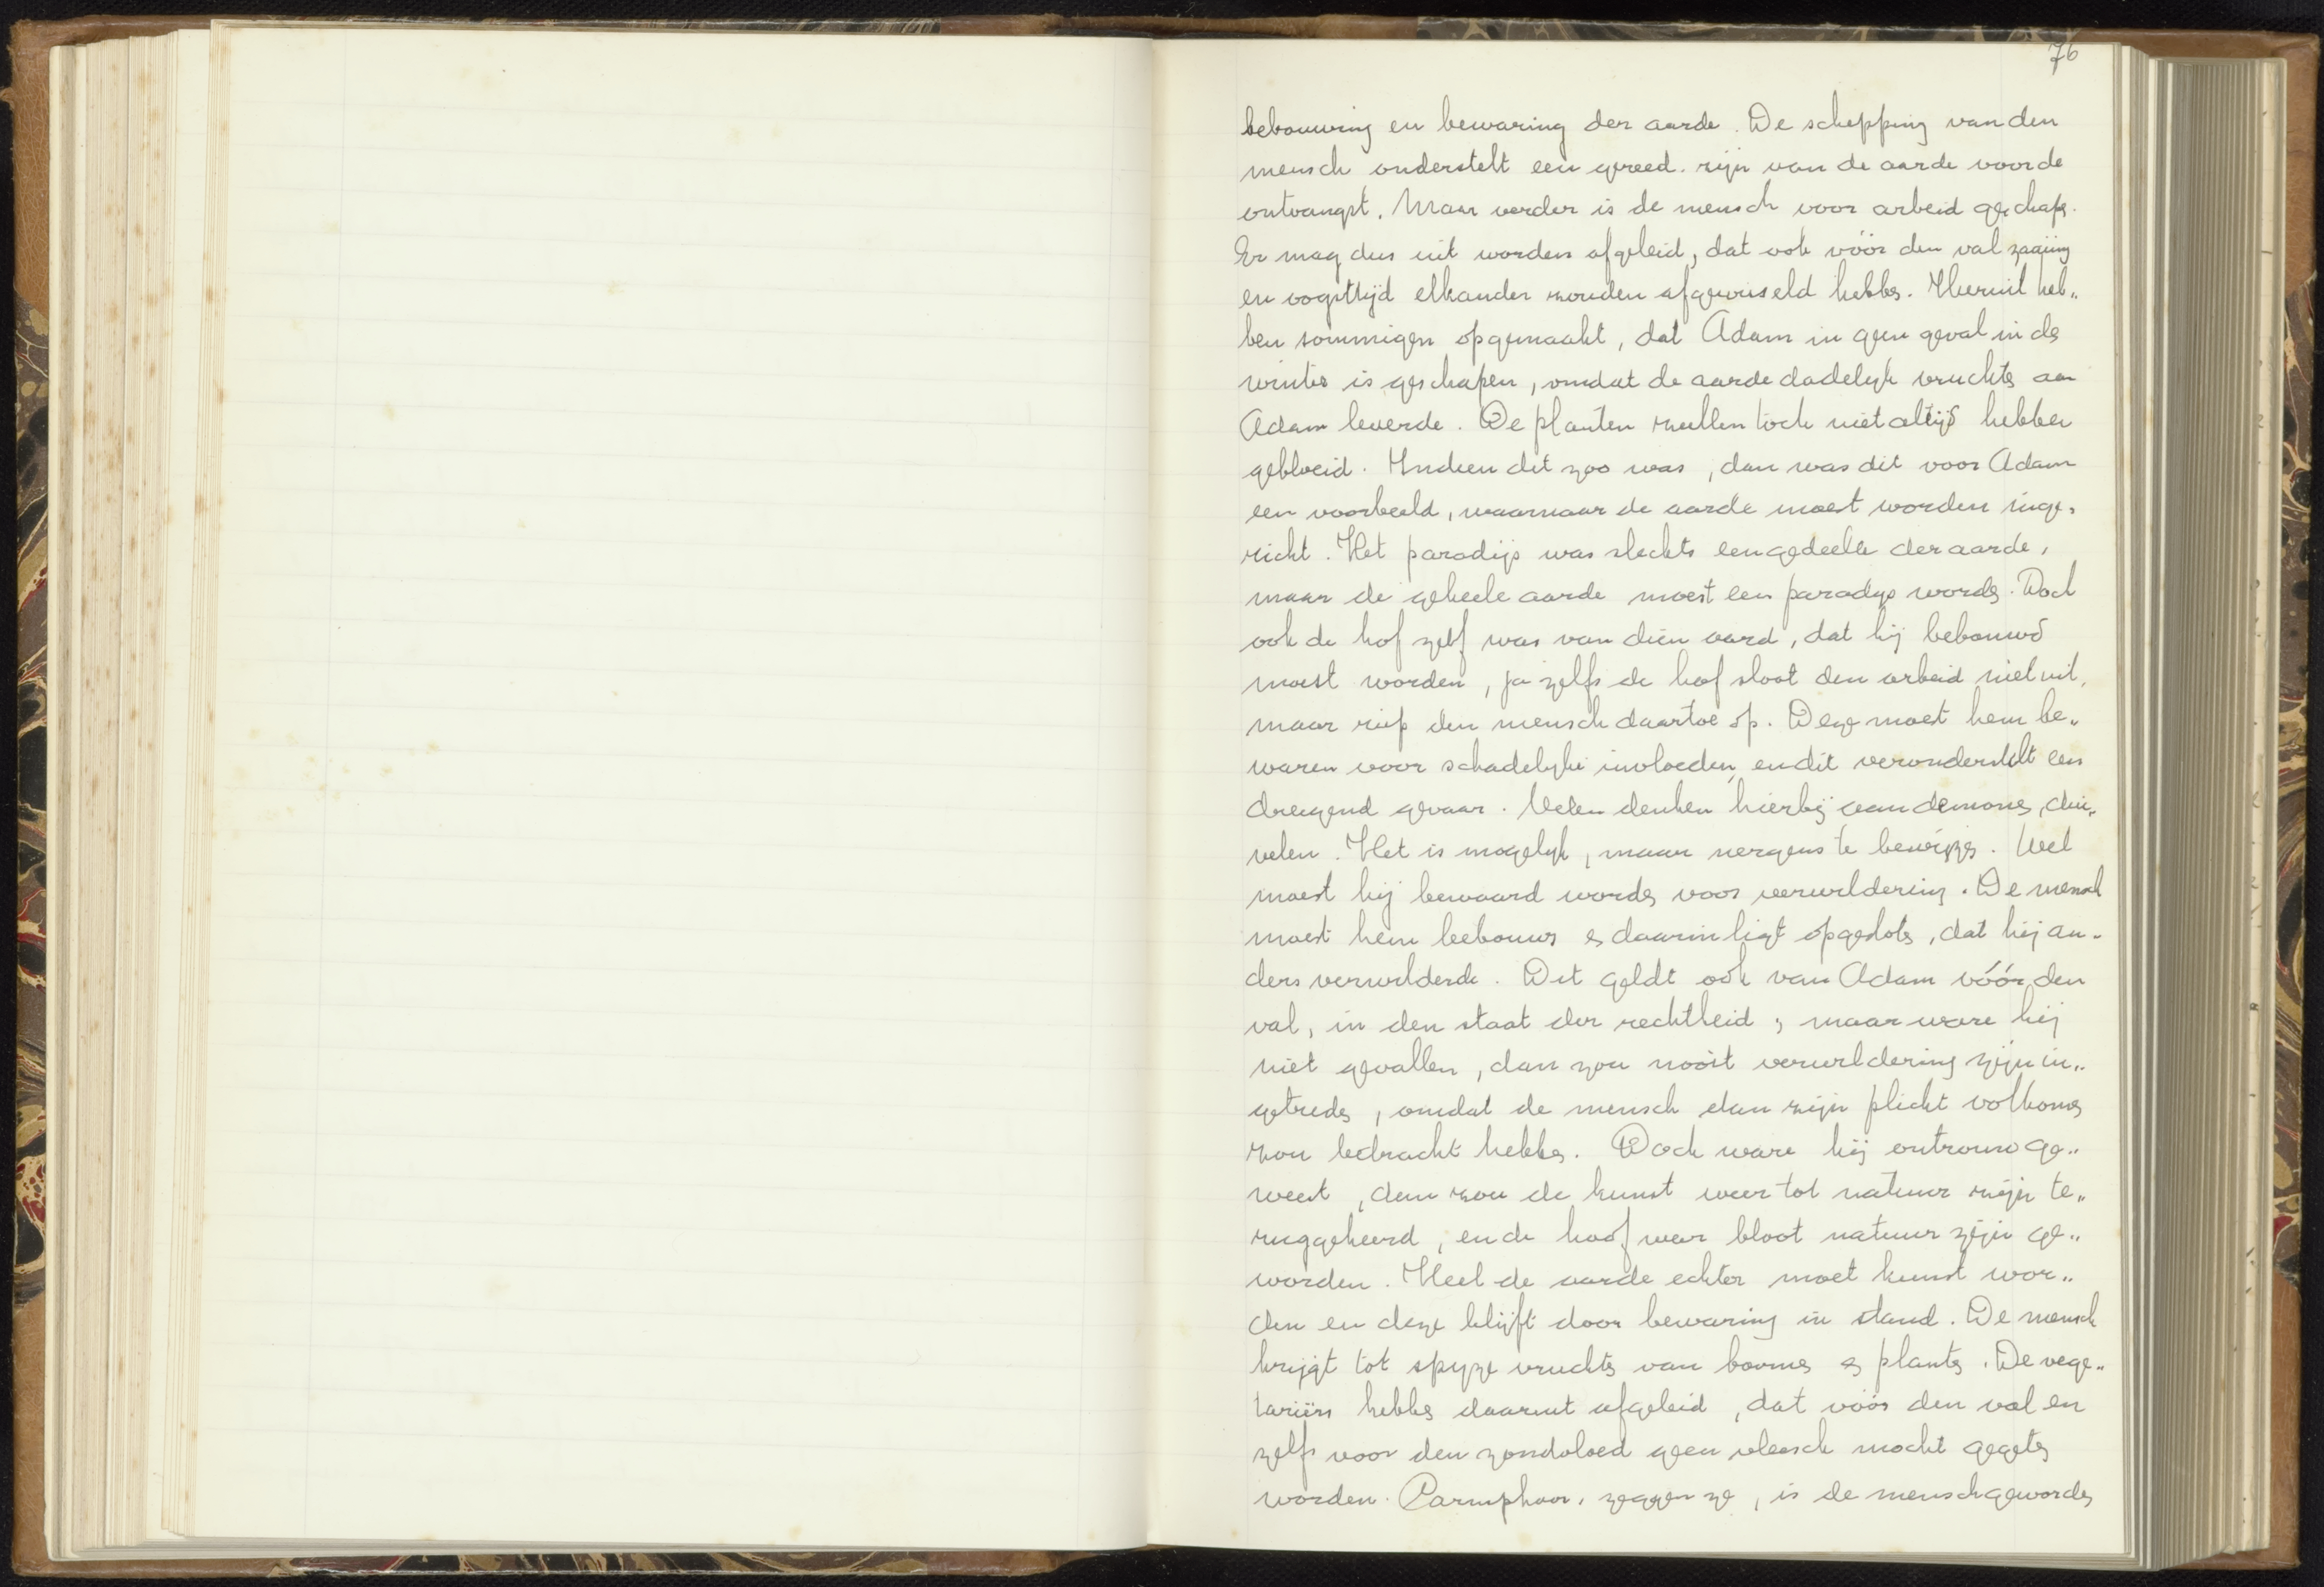 76
bebouwing en bewaring der aarde. De schepping van den
mensch onderstelt een gereed. zijn van de aarde voor de
ontvangst. Maar verder is de mensch voor arbeid geschapen.
Er mag dus uit worden afgeleid, dat ook vóór den val zaaiing
en oogsttijd elkander zouden afgewisseld hebben. Hieruit heb„
ben sommigen opgemaakt, dat Adam in geen geval in de
winter is geschapen, omdat de aarde dadelijk vruchten aan
Adam leverde. De planten zullen toch niet altijd hebben
gebloeid. Indien dit zoo was, dan was dit voor Adam
een voorbeeld, waarnaar de aarde moest worden inge„
richt. Het paradijs was slechts een gedeelte der aarde,
maar de geheele aarde moest een paradijs worden. Doch
ook de hof zelf was van dien aard, dat hij bebouwd
moest worden, ja zelfs de hof sloot den arbeid niet uit,
maar riep den mensch daartoe op. Deze moest hem be„
waren voor schadelijke invloeden, en dit veronderstelt een
dreigend gevaar. Velen denken hierbij aan demonen, dui„
velen. Het is mogelijk, maar nergens te bewijzen. Wel
moest hij bewaard worden voor verwildering. De mensch
moest hem bebouwen en daarin ligt opgesloten, dat hij an„
ders verwilderde. Dit geldt ook van Adam vóór den
val, in den staat der rechtheid; maar ware hij
niet gevallen, dan zou nooit verwildering zijn in„
getreden, omdat de mensch dan zijn plicht volkomen
zou betracht hebben. Doch ware hij ontrouw ge„
weest, dan zou de kunst weer tot natuur zijn te„
ruggekeerd, en de hoof weer bloot natuur zijn ge„
worden. Heel de aarde echter moet kunst wor„
den en deze blijft door bewaring in stand. De mensch
krijgt tot spijze vruchten van boomen en planten. De vege„
tariërs hebben daaruit afgeleid, dat vóór den val en
zelfs voor den zondvloed geen vleesch mocht gegeten
worden. zeggen ze, is de mensch geworden